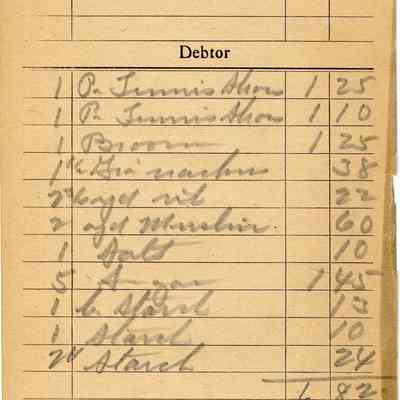 Debtor
1 Pr Tennis Shoes 1 25
1 Pr Tennis Shoes 1 10
1 Broom 1 25
1 38
2 yd 22
2 yd Muslin 60
1 Salt 10
5 1 45
1 b Starch 13
1 Starch 10
24 Starch 24
6 82